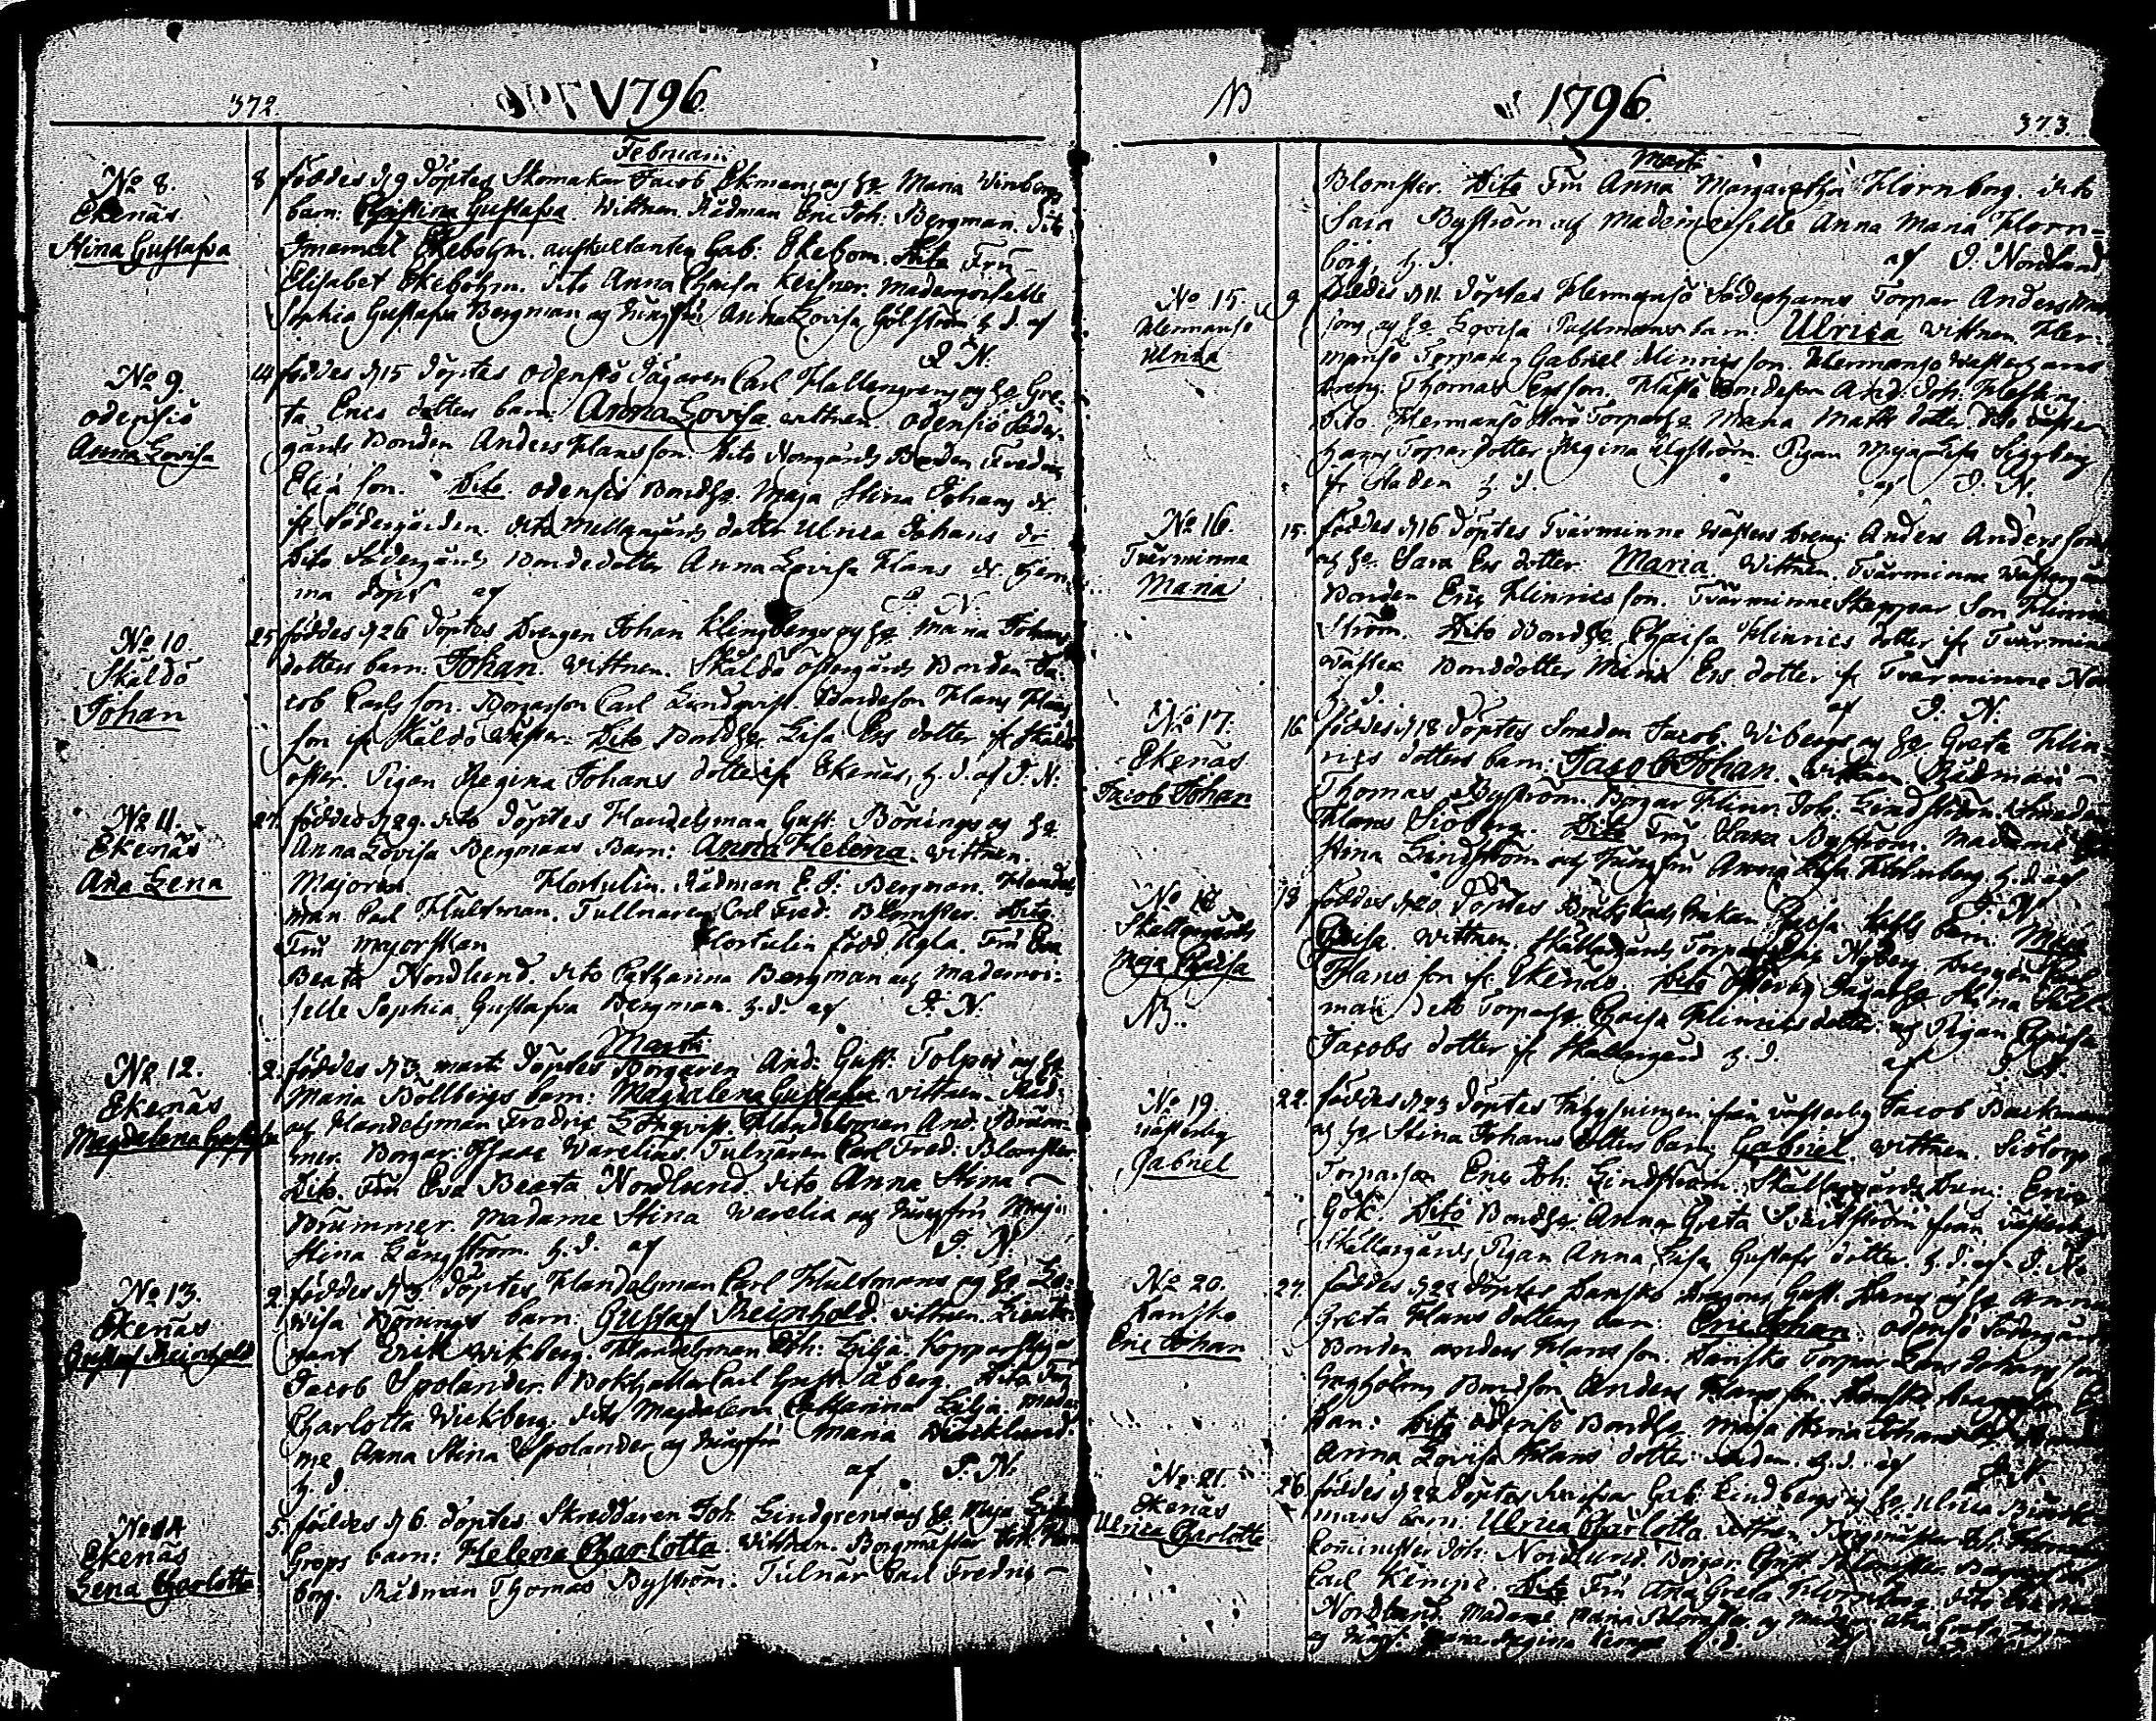 372.
1796.
Februarii
No 8.
Ekenäs
Stina Gustafva
8 föddes d 9 döptes Skomakar Jacob Ekmans och h: Maria Winbergs
barn: Christina Gustafva. Wittnen. Rådman Eric Joh: Bergman. Dito
Imanuel Ekebohm. auskultanten Gab: Ekebom. Dito Fru
Elisabet Ekebohm. dito Anna Chaisa Keisner. Mademoiselle
Sophia Gustafva Bergman och Jungfru Anna Lovisa Gölström h. d. af
J. N.
No 9.
Odensiö
Anna Lovisa
14 föddes d 15 döptes Odensiö Jägaren Carl Hallengrens och h: Gre-
ta Erics dotters barn: Anna Lovisa wittnen. Odensiö Söder-
gårds Bonden Anders Hansson. dito Norrgårds Bonden Fredric
Eliæ son. Dito. Odensiö Bondh: Maja Stina Johans dr
fr Södergården. dito Mellangårds dotter Ulrica Johans dr
Dito Södergårds Bondedotter Anna Lovisa Hans dr. hem-
ma döpt af J. N.
No 10.
Skäldö
Johan
25 föddes d 26 döptes Drengen Johan Klingbergs och h: Maria Johans
dotters barn: Johan. Wittnen. Skäldö östergårds Bonden Ja-
cob Carls son. Borgarson Carl Lundqvist. Bondeson Hans Hans
son fr Skäldö Wäster. Dito Bondh: Lisa Ers dotter fr Skäldö
öster. Pigan Regina Johans dotter fr Ekenäs, h. d. af J. N.
No 11.
Ekenäs
Ana Lena
27. föddes d 29. dito döptes Handelsman Gust: Bönings och h:
Anna Lovisa Bergmans Barn: Anna Helena. Wittnen.
Majoren Hortulin. Rådman E. J: Bergman. Handels
man Carl Hultman. Tullnaren Carl Fred: Blomster. Dito.
Fru Majorskan Hortulin född Ugla. Fru Eva
Beata Nordlund. dito Catharina Bergman och Mademoi-
selle Sophia Gustafva Bergman. h. d. af J. N.
Martii
No 12.
Ekenäs
Magdalena Gustafva
2. föddes d 3. mart: döptes Borgaren And: Gust: Tolpos och h:
Maria Böllbergs barn: Magdalena Gustafva wittnen. Råd-
och Handelsman Fredric Lönqvist. Handelsman And: Brüm-
mer. Borgar: Isaac Warelius. Tulnären Carl Fred: Blomster.
Dito. Fru Eva Beata Nordlund. dito Anna Stina
Brümmer. Madame Stina Warelia och Jungfru Maj:
Stina Långström. h. d. af J. N.
No 13.
Ekenäs
Gustaf Reinhold
2. föddes d 3 döptes Handelsman Carl Hultmans och h: Lo-
visa Bönings barn: Gustaf Reinhold. Wittnen. Lieute-
nant Erik Wikberg. Handelsman Joh: Lilja. Kopparslagar
Jacob Spolander. Bokhållar Carl Gust: Åberg. Dito Fru
Charlotta Wickberg. dito Magdalena Catharina Lilja. Mada-
me Anna Stina Spolander och Jungfru Maria Björklund.
h. d. af J. N.
No 14
Ekenäs
Lena Charlotta
5. föddes d 6. döptes Skreddaren Joh: Lindgrens och h: Maja
Grops barn: Helena Charlotta. Wittnen. Borgmästar Joh: Horn
borg. Rådman Thomas Byström. Tulnär Carl Fredric
NB
1796.
373.
Martii
Blomster. Dito Fru Anna Margaretha Hornborg. dito
Sara Byström och Mademoiselle Anna Maria Horn-
borg. h. d. af J. Nordlund
No 15.
Hermansö
Ulrica
9. föddes d 11. döptes Hermansö Söderhamns Torpar Anders
sons och h: Lovisa barn: Ulrica wittnen. Her-
mansö Torparen Gabriel Hinrics son. Hermansö Westerhamns
dreng: Thomas Ersson. Hästö Bondeson And: Joh: Hesting.
Dito. Hermansö Torparh: Maria Matts dotter. dito Wäster
hamns Torpardotter Regina Elgström. Pigan Maja Lisa Sigrberg
fr Staden h. d. af J. N.
No 16.
Tvärminne
Maria
15. föddes d 16 döptes Tvärminne Wästers Dreng: Anders Anderssons
och h: Sara Ers dotter: Maria. Wittnen. Tvärminne Wästergårds
Bonden Eric Hinrics son. Tvärminne Skeppar Son
Ström. Dito Bondh: Chaisa Hinrics dotter fr Tvärminne
Wäster Bonddotter Maria Ers. dotter fr Tvärminne Nor
h. d. af J. N.
No 17.
Ekenäs
Jacob Johan
16 föddes d 18 döptes Smeden Jacob Wibergs och h: Greta Hin-
rics dotters barn: Jacob Johan. Wittnen Rådman
Thomas Byström. Borgar Hinr: Joh: Lindström. Smeden
Hans Siöberg. Dito Fru Sara Byström. Madame
Stina Lindström och Jungfru Anna Lisa Holmberg. h. d. af
J. N.
No 18
Skällargårds
Maja Chaisa
NB.
18 föddes d 20 döptes Chaisa barn: Maja
Chaisa. Wittnen. Skällargårds Torpar Eric Nyberg. Drengen
Hans son fr Ekenäs. Dito Österby Jägarh: Stina Säll-
man dito Torparh: Chaisa Hinrics dotter och Pigan Chaisa
Jacobs dotter fr Skällargård h. d. af J. N.
No 19.
Wästerby
Gabriel
22. föddes d 23 döptes Inhysingen ifrån Wästerby Jacob Backmans
och h: Stina Johans dotters barn Gabriel. Wittnen. Siötorps
Torparson Eric Joh: Lindström. Skällargårds Dreng: Eric
Gök. Dito Bondh: Anna Greta Sväström från Wästerby
Skällargårds Pigan Anna Lisa Gustafs dotter. h. d. af J. N.
No 20.
Dansko
Eric Johan
27. föddes d 28 döptes Dansko Dragon Gust: Dans och h: Anna
Greta Hans dotters barn: Eric Johan. Odensö Södergårds
Bonden Anders Hans son. Dansko Torpar Lars Johans son
Engholms Bondson Anders Hans son. Dansko
Dan: Dito Odensö Bondh: Maja Stina Johans
Anna Lovisa Hans dotter h. d. af J. N.
No 21.
Ekenäs
Ulrica Charlotta
26. föddes d 28 döptes Gab: Lindbergs och h: Ulrica Björk-
mans barn: Ulrica Charlotta. Wittnen. Borgmästar Joh: Hornborg
Cominister Joh: Nordlund. Borgar Christ: Blomster.
Carl Kempe. Dito Fru Ana Greta Hornborg. dito Eva Bea
Nordlund. Madame Blomster och
och Jungf: Regina Kempe h. d. af